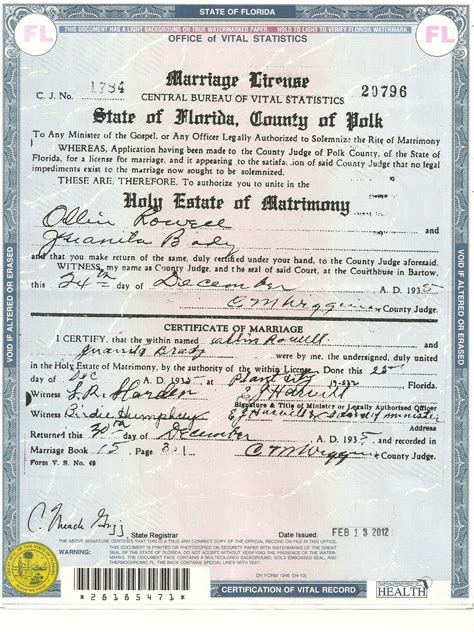 STATE OF FLORIDA
FL THIS DOCUMENT HAS A LIGHT BACKGROUND ON TRUE WATERMARKED PAPER. HOLD TO LIGHT TO VERIFY FLORIDA WATERMARK. FL
OFFICE of VITAL STATISTICS
Marriage License
C. J. No. 1784 CENTRAL BUREAU OF VITAL STATISTICS 20796
State of Florida, County of Polk
To Any Minister of the Gospel, or Any Officer Legally Authorized to Solemnize the Rite of Matrimony
WHEREAS, Application having been made to the County Judge of Polk County, of the State of
Florida, for a license for marriage, and it appearing to the satisfaction of said County Judge that no legal
impediments exist to the marriage now sought to be solemnized.
THESE ARE, THEREFORE, To authorize you to unite in the
Holy Estate of Matrimony
Ollin Rowell
Juanita Brady
and that you make return of the same, duly certified under your hand, to the County Judge aforesaid.
WITNESS, my name as County Judge, and the seal of said Court, at the Courthouse in Bartow,
this 24th day of December A. D. 1935
C M Wiggins County Judge.
CERTIFICATE OF MARRIAGE
I CERTIFY, that the within named Rowell
Juanita Brady were by me, the undersigned, duly united
in the Holy Estate of Matrimony, by the authority of the within License. Done this
day of Dec A. D. 1935, at Plant City Florida.
Witness Harden Harvill
Signature & Title of Minister or Legally Authorized Officer
Witness Birdie Humphrey
Address
Returned this 30th day of December A. D. 1935, and recorded in
Marriage Book 15, Page C M Wiggins County Judge.
Form V. S. No. 49
C. Meade Grigg, State Registrar Date Issued: FEB 13 2012
THE ABOVE SIGNATURE CERTIFIES THAT THIS IS A TRUE AND CORRECT COPY OF THE OFFICIAL RECORD ON FILE IN THIS OFFICE.
WARNING: THIS DOCUMENT IS PRINTED OR PHOTOCOPIED ON SECURITY PAPER WITH WATERMARKS OF THE GREAT
SEAL OF THE STATE OF FLORIDA. DO NOT ACCEPT WITHOUT VERIFYING THE PRESENCE OF THE WATERMARKS.
THE DOCUMENT FACE CONTAINS A MULTICOLORED BACKGROUND, GOLD EMBOSSED SEAL, AND
THERMOCHROMIC FL. THE BACK CONTAINS SPECIAL LINES WITH TEXT.
DH FORM 1946 (04-10)
*28185471*
CERTIFICATION OF VITAL RECORD
HEALTH
VOID IF ALTERED OR ERASED
VOID IF ALTERED OR ERASED